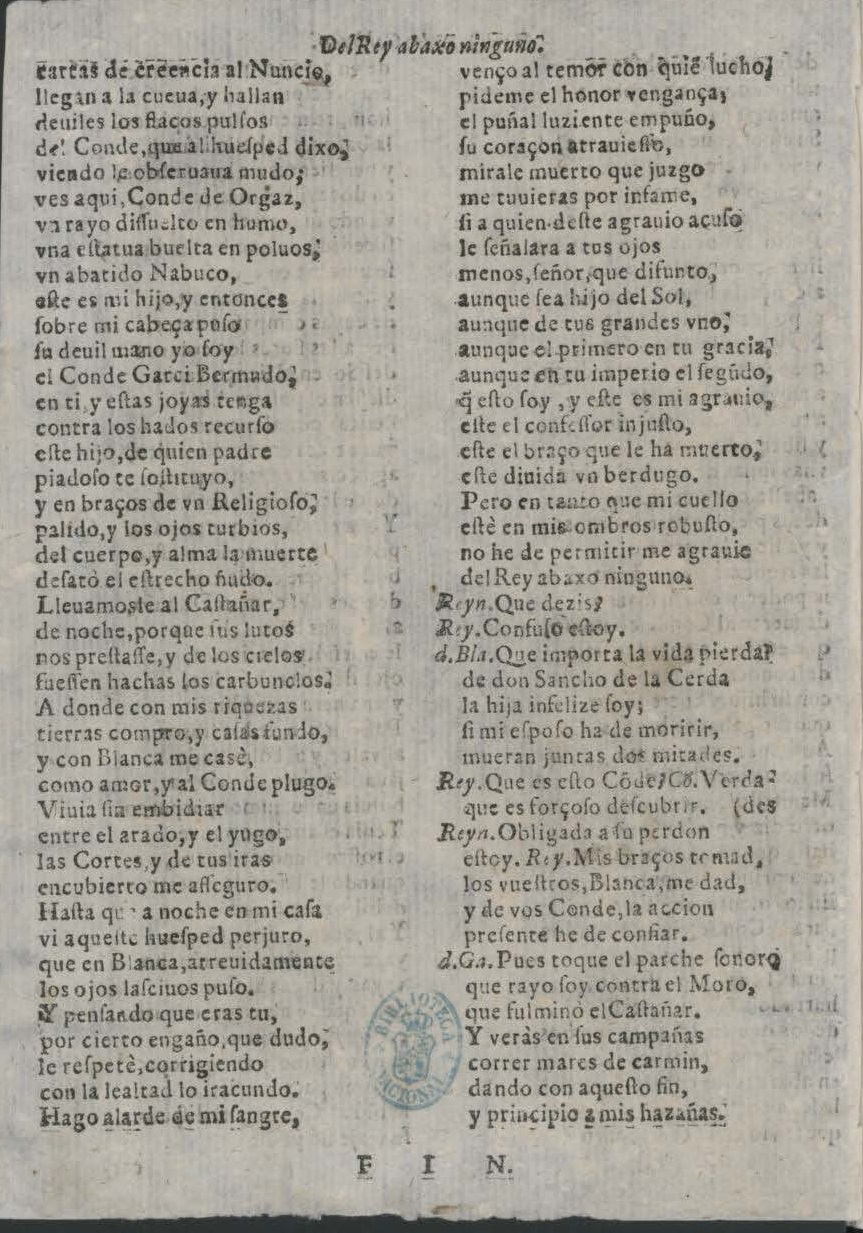 Del Rey abaxo ninguno.
cartas de creencia al Nuncio,
llegan a la cueua, y hallan
deuiles los flacos pulsos
del Conde, que al huesped dixo,
viendo le obseruaua mudo;
ves aqui, Conde de Orgaz,
vn rayo dissuelto en humo,
vna estatua buelta en poluos,
vn abatido Nabuco,
este es mi hijo, y entonces
sobre mi cabeça puso
su deuil mano yo soy
el Conde Garci Bermudo,
en ti, y estas joyas tenga
contra los hados recurso
este hijo, de quien padre
piadoso te sostituyo,
y en braços de vn Religioso,
palido, y los ojos turbios,
del cuerpo, y alma la muerte
desatò el estrecho ñudo.
Lleuamosle al Castañar,
de noche, porque sus lutos
nos prestasse, y de los cielos
fuessen hachas los carbunclos.
A donde con mis riquezas
tierras compro, y casas fundo,
y con Blanca me casè,
como amor, y al Conde plugo.
Viuia sin embidiar
entre el arado, y el yugo,
las Cortes, y de tus iras
encubierto me asseguro.
Hasta que a noche en mi casa
vi aqueste huesped perjuro,
que en Blanca, atreuidamente
los ojos lasciuos puso.
Y pensando que eras tu,
por cierto engaño, que dudo,
le respetè, corrigiendo
con la lealtad lo iracundo.
Hago alarde de mi sangre,
venço al temor con quiē lucho,
pideme el honor vengança,
el puñal luziente empuño,
su coraçon atrauiesso,
mirale muerto que juzgo
me tuuieras por infame,
si a quien deste agrauio acuso
le señalara a tus ojos
menos, señor, que difunto,
aunque sea hijo del Sol,
aunque de tus grandes vno,
aunque el primero en tu gracia,
aunque en tu imperio el segũdo,
q̃ esto soy, y este es mi agrauio,
este el confessor injusto,
este el braço que le ha muerto,
este diuida vn berdugo.
Pero en tanto que mi cuello
estè en mis ombros robusto,
no he de permitir me agrauie
del Rey abaxo ninguno.
Reyn. Que dezis?
Rey. Confuso estoy.
d. Bla. Que importa la vida pierda?
de don Sancho de la Cerda
la hija infelize soy;
si mi esposo ha de moririr,
mueran juntas dos mitades.
Rey. Que es esto Cõde? Cõ. Verda-
que es forçoso descubrir. (des
Reyn. Obligada a su perdon
estoy. Rey. Mis braços tomad,
los vuestros, Blanca, me dad,
y de vos Conde, la accion
presente he de confiar.
d. Ga. Pues toque el parche sonoro
que rayo soy contra el Moro,
que fulminò el Castañar.
Y veràs en sus campañas
correr mares de carmin,
dando con aquesto fin,
y principio a mis hazañas.
F I N.
BIBLIOTECA NACIONAL